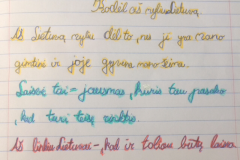 Kodėl aš myliu Lietuvą.
Aš Lietuvą myliu dėl to, nes ji yra mano
gimtinė ir joje gyvena mano šeima.
Laisvė tai – jausmas, kuris tau pasako,
kad turi teisę
Aš linkiu Lietuvai –, kad ir toliau būtų laisva